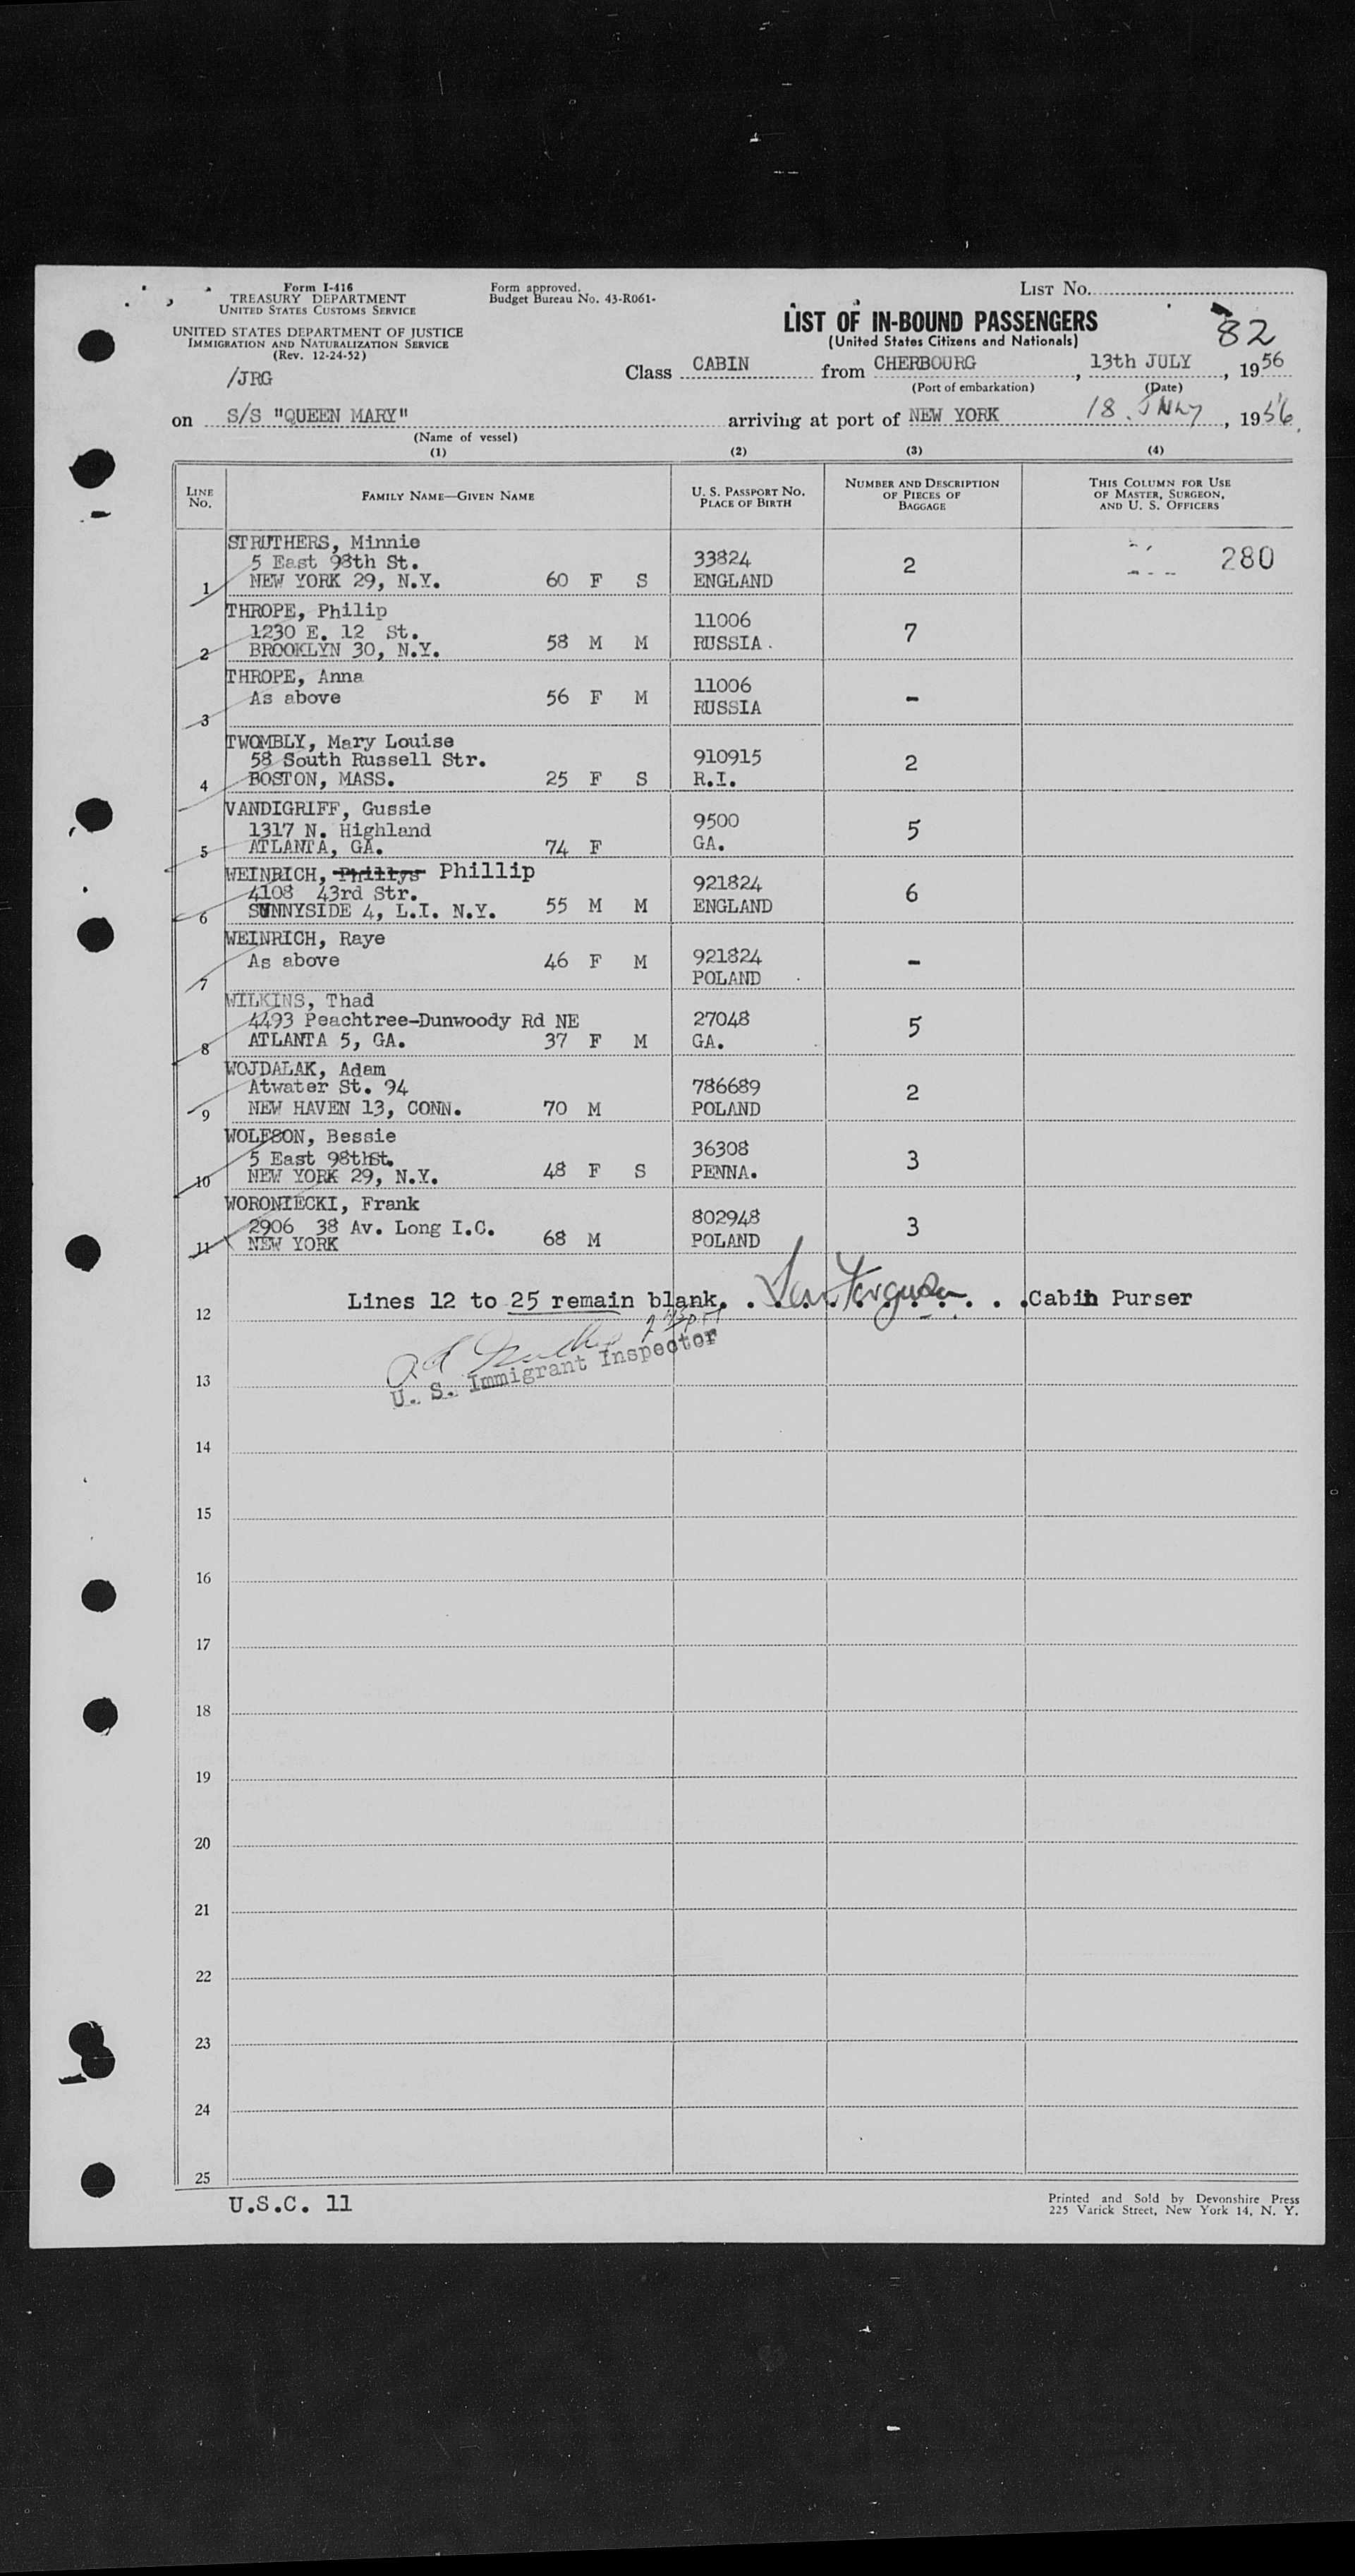 Form I-416
TREASURY DEPARTMENT
UNITED STATES CUSTOMS SERVICE
UNITED STATES DEPARTMENT OF JUSTICE
IMMIGRATION AND NATURALIZATION SERVICE
(Rev. 12-24-52)
/JRG
Form approved.
Budget Bureau No. 43-R061-
LIST NO.
LIST OF IN-BOUND PASSENGERS
(United States Citizens and Nationals)
82
Class CABIN from CHERBOURG, 13th JULY, 1956
(Port of embarkation) (Date)
on S/S "QUEEN MARY" arriving at port of NEW YORK 18. JULY, 1956.
(Name of vessel)
(1) (2) (3) (4)
LINE NO. FAMILY NAME—GIVEN NAME U. S. PASSPORT NO. PLACE OF BIRTH NUMBER AND DESCRIPTION OF PIECES OF BAGGAGE THIS COLUMN FOR USE OF MASTER, SURGEON, AND U. S. OFFICERS
STRUTHERS, Minnie
5 East 98th St. 33824 2 280
1 NEW YORK 29, N.Y. 60 F S ENGLAND
THROPE, Philip
1230 E. 12 St. 11006 7
2 BROOKLYN 30, N.Y. 58 M M RUSSIA.
THROPE, Anna
As above 56 F M 11006 -
3 RUSSIA
TWOMBLY, Mary Louise
58 South Russell Str. 910915 2
4 BOSTON, MASS. 25 F S R.I.
VANDIGRIFF, Gussie
1317 N. Highland 9500 5
5 ATLANTA, GA. 74 F GA.
WEINRICH, Phillys Phillip
4108 43rd Str. 921824 6
6 SUNNYSIDE 4, L.I. N.Y. 55 M M ENGLAND
WEINRICH, Raye
As above 46 F M 921824 -
7 POLAND
WILKINS, Thad
4493 Peachtree-Dunwoody Rd NE 27048 5
8 ATLANTA 5, GA. 37 F M GA.
WOJDALAK, Adam
Atwater St. 94 786689 2
9 NEW HAVEN 13, CONN. 70 M POLAND
WOLFSON, Bessie
5 East 98thSt. 36308 3
10 NEW YORK 29, N.Y. 48 F S PENNA.
WORONIECKI, Frank
2906 38 Av. Long I.C. 802948 3
11 NEW YORK 68 M POLAND
12 Lines 12 to 25 remain blank. . . . Ferguson . . .Cabin Purser
U. S. Immigrant Inspector
13
14
15
16
17
18
19
20
21
22
23
24
25
U.S.C. 11
Printed and Sold by Devonshire Press
225 Varick Street, New York 14, N. Y.